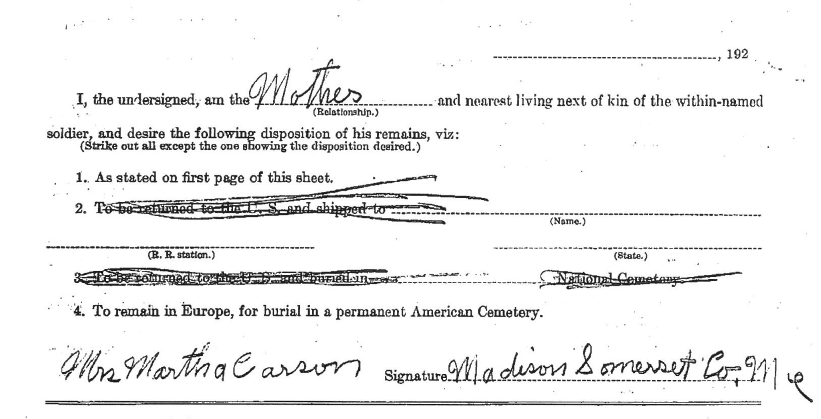 , 192
I, the undersigned, am the Mother and nearest living next of kin of the within-named
(Relationship.)
soldier, and desire the following disposition of his remains, viz:
(Strike out all except the one showing the disposition desired.)
1. As stated on first page of this sheet.
2. To be returned to the U. S. and shipped to
(Name.)
(R. R. station.) (State.)
3. To be returned to the U. S. and buried in National Cemetery.
4. To remain in Europe, for burial in a permanent American Cemetery.
Mrs Martha Carson Signature Madison Somerset Co, Me